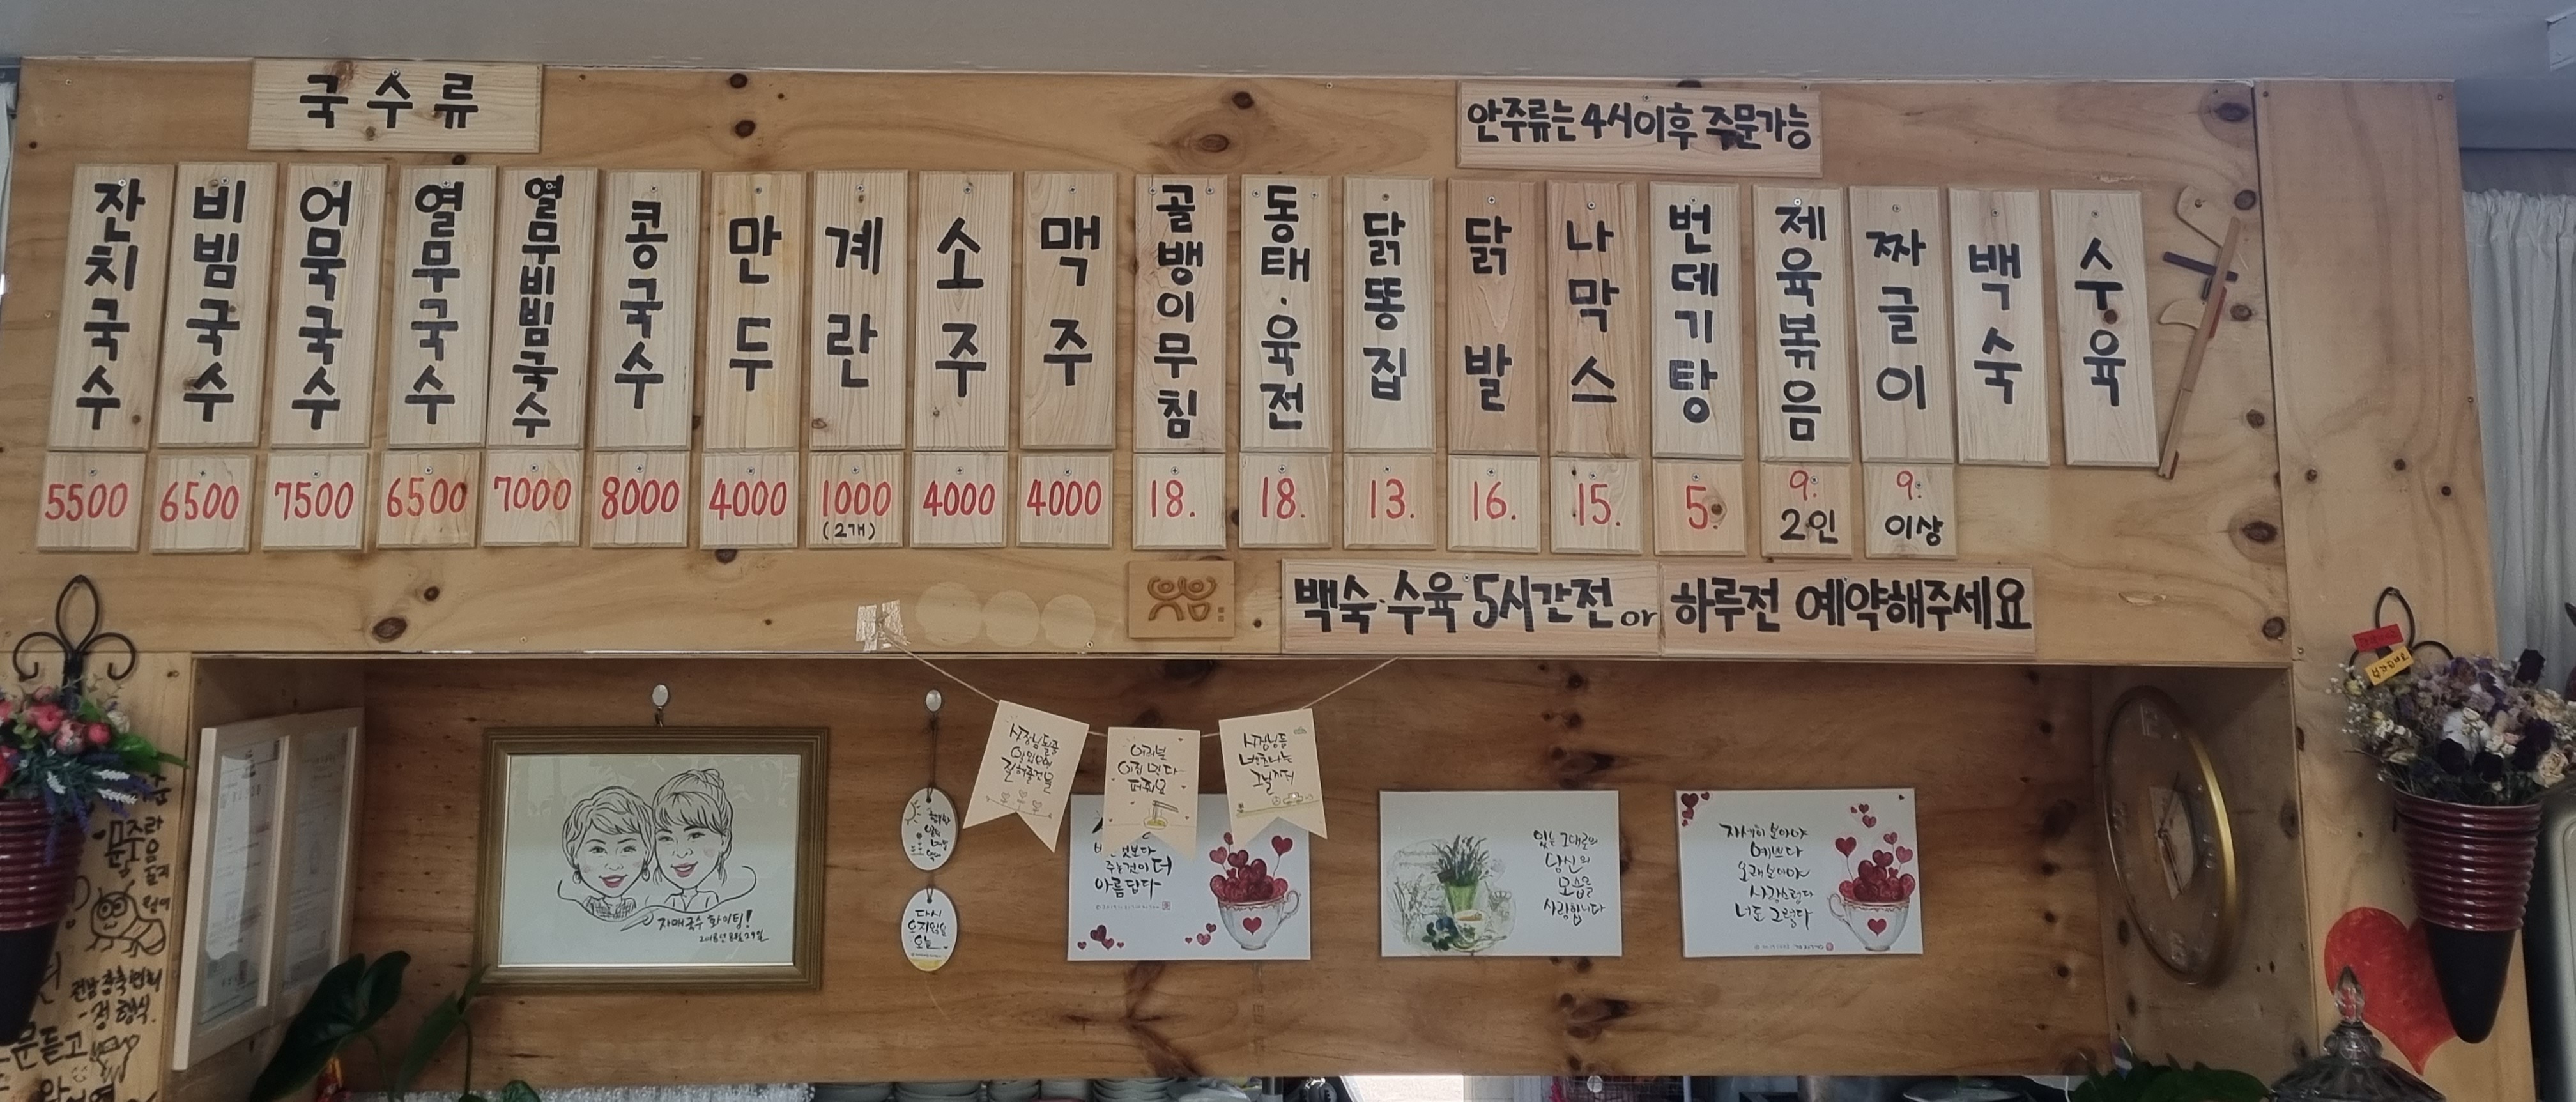 국수류
안주류는 4시이후 주문가능
잔치국수
5500
비빔국수
6500
어묵국수
7500
열무국수
6500
열무비빔국수
7000
콩국수
8000
만두
4000
계란
1000
(2개)
소주
4000
맥주
4000
골뱅이무침
18.
동태·육전
18.
닭똥집
13.
닭발
16.
나막스
15.
번데기탕
5.
제육볶음
9.
2인
짜글이
9.
이상
백숙
수육
백숙·수육 5시간전 or 하루전 예약해주세요
자매국수 화이팅!
다시
오지않을
오늘
주는것이 더
아름답다
있는 그대로의
당신의
모습을
사랑합니다
자세히 보아야
예쁘다
오래보아야
사랑스럽다
너도 그렇다